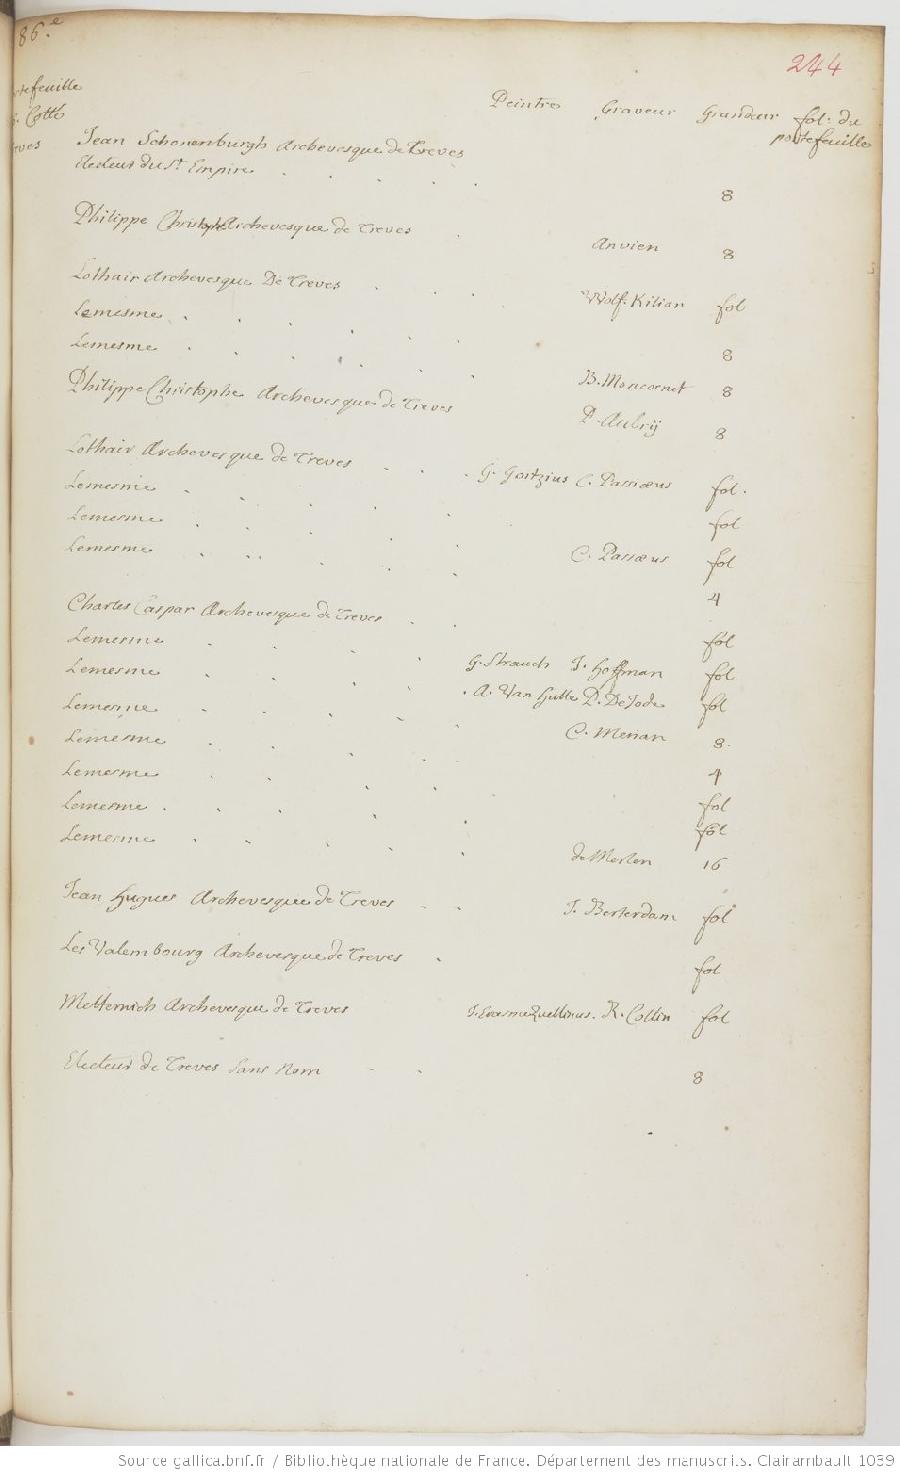 86.e
244
rtefeuille
Cotté
eves
Peintre Graveur Grandeur fol: du portefeuille
Jean Schonenburgh Archevesque de Treves
electeur du St. Empire 8
Philippe Christophe Archevesque de Treves Anvien 8
Lothair Archevesque De Treves Wolf. Kilian fol
Lemesme 8
Lemesme B. Moncornet 8
Philippe Christophe Archevesque de Treves P. Aubrÿ 8
Lothair Archevesque de Treves G. Gortzius C. Passæus fol.
Lemesme fol
Lemesme C. Passæus fol
Lemesme 4
Charles Caspar Archevesque de Treves fol
Lemesme G. Strauch J. Hoffman fol
Lemesme A. Van Hulle P. De Jode fol
Lemesme C. Merian 8.
Lemesme 4
Lemesme fol
Lemesme fol
Lemesme de Merlen 16
Jean Hugues Archevesque de Treves J. Berterdam fol
Les Valembourg Archevesque de Treves fol
Metternich Archevesque de Treves J. Erasme Quellinus. R. Collin fol
Electeur de Treves Sans Nom 8
Source gallica.bnf.fr / Bibliothèque nationale de France. Département des manuscrits. Clairambault 1039